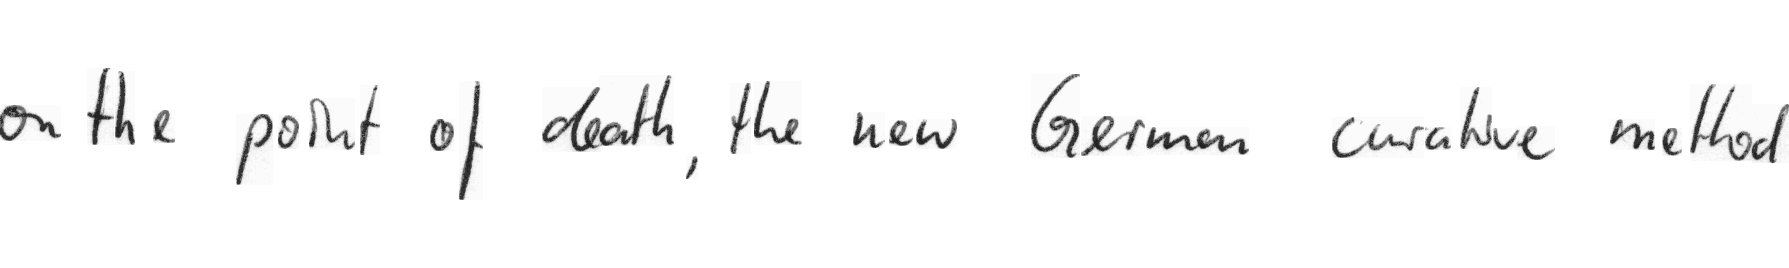 on the point of death, the new German curative method